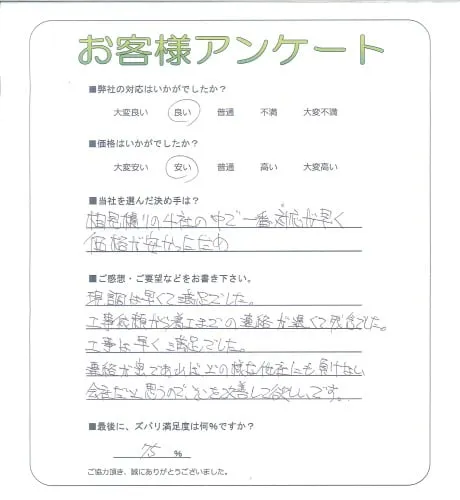 お客様アンケート
■弊社の対応はいかがでしたか？
大変良い 良い 普通 不満 大変不満
■価格はいかがでしたか？
大変安い 安い 普通 高い 大変高い
■当社を選んだ決め手は？
相見積りの4社の中で一番対応が早く
価格が安かったため
■ご感想・ご要望などをお書き下さい。
現調は早くて満足でした。
工事依頼から着工までの連絡が遅くて残念でした。
工事は早く満足でした。
連絡が
であればどの様な他社にも負けない
会社だと思うので、そこを改善して欲しいです。
■最後に、ズバリ満足度は何%ですか？
75 %
ご協力頂き、誠にありがとうございました。